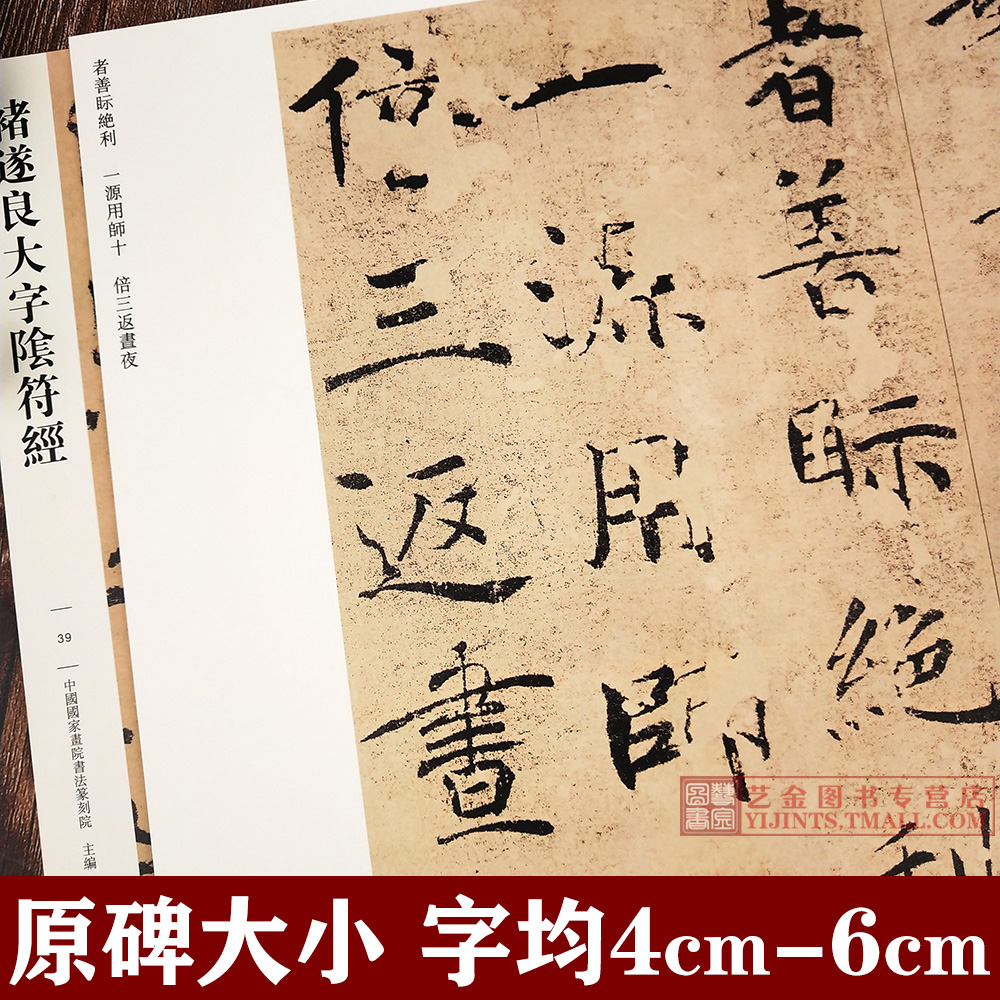 褚遂良大字陰符經
39
中國國家畫院書法篆刻院 主編
者善眎絶利 一源用師十 倍三返晝夜
者善眎絶利
一源用師
倍三返晝
艺金图书专营店
YIJINTS.TMALL.COM
原碑大小 字均4cm-6cm